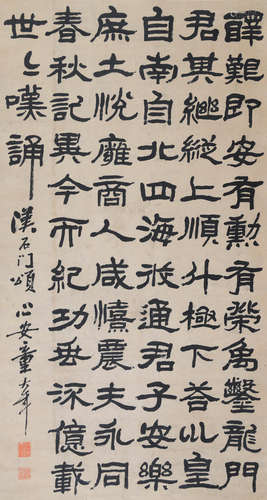 醳艱即安有勳有榮禹鑿龍門
君其繼縱上順斗極下答巛皇
自南自北四海攸通君子安樂
庶土悅廱商人咸憘農夫永同
春秋記異今而紀功垂流億載
世〻嘆誦
漢石门頌 心安童大年